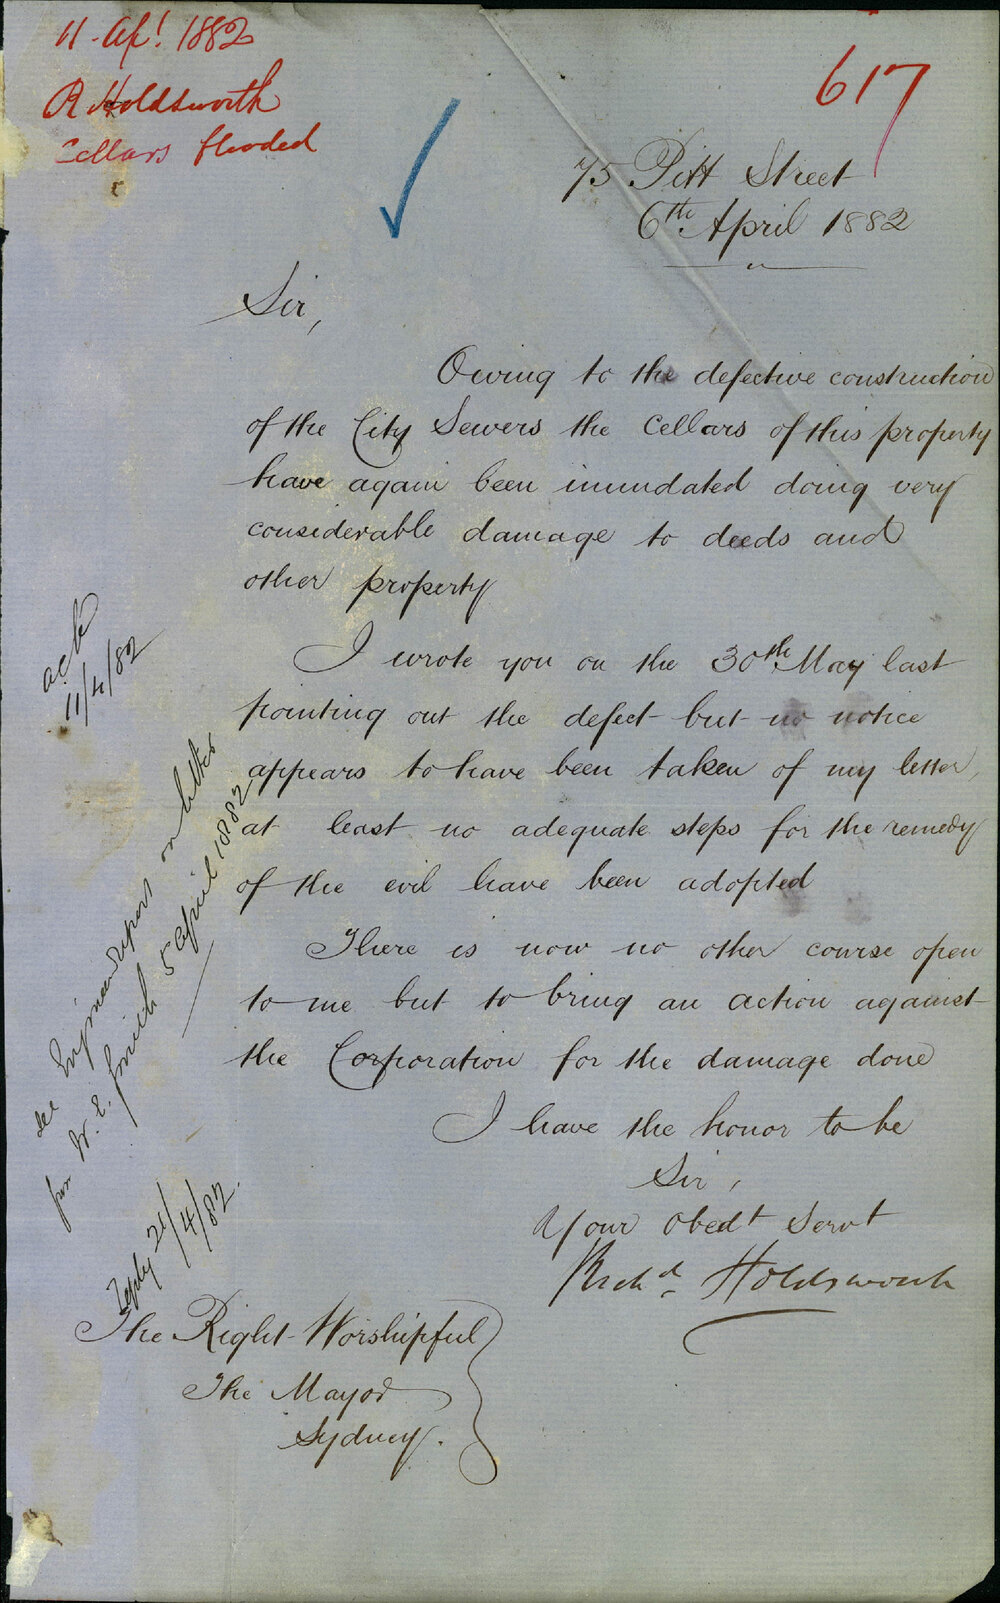 11. Apl. 1882
R Holdsworth
Cellars flooded
617
75 Pitt Street
6th April 1882
Sir,
Owing to the defective construction
of the City Sewers the Cellars of this property
have again been inundated doing very
considerable damage to deeds and
other property
I wrote you on the 30th May last
pointing out the defect but no notice
appears to have been taken of my letter,
at least no adequate steps for the remedy
of the evil have been adopted
There is now no other course open
to me but to bring an action against
the Corporation for the damage done
I have the honor to be
Sir,
Your obedt Servt
Richd Holdsworth
The Right Worshipful
The Mayor
Sydney.
ack
11/4/82
See Engineers report on letter
from W. E. Smith 5 April 1882
Reply 21/4/82.